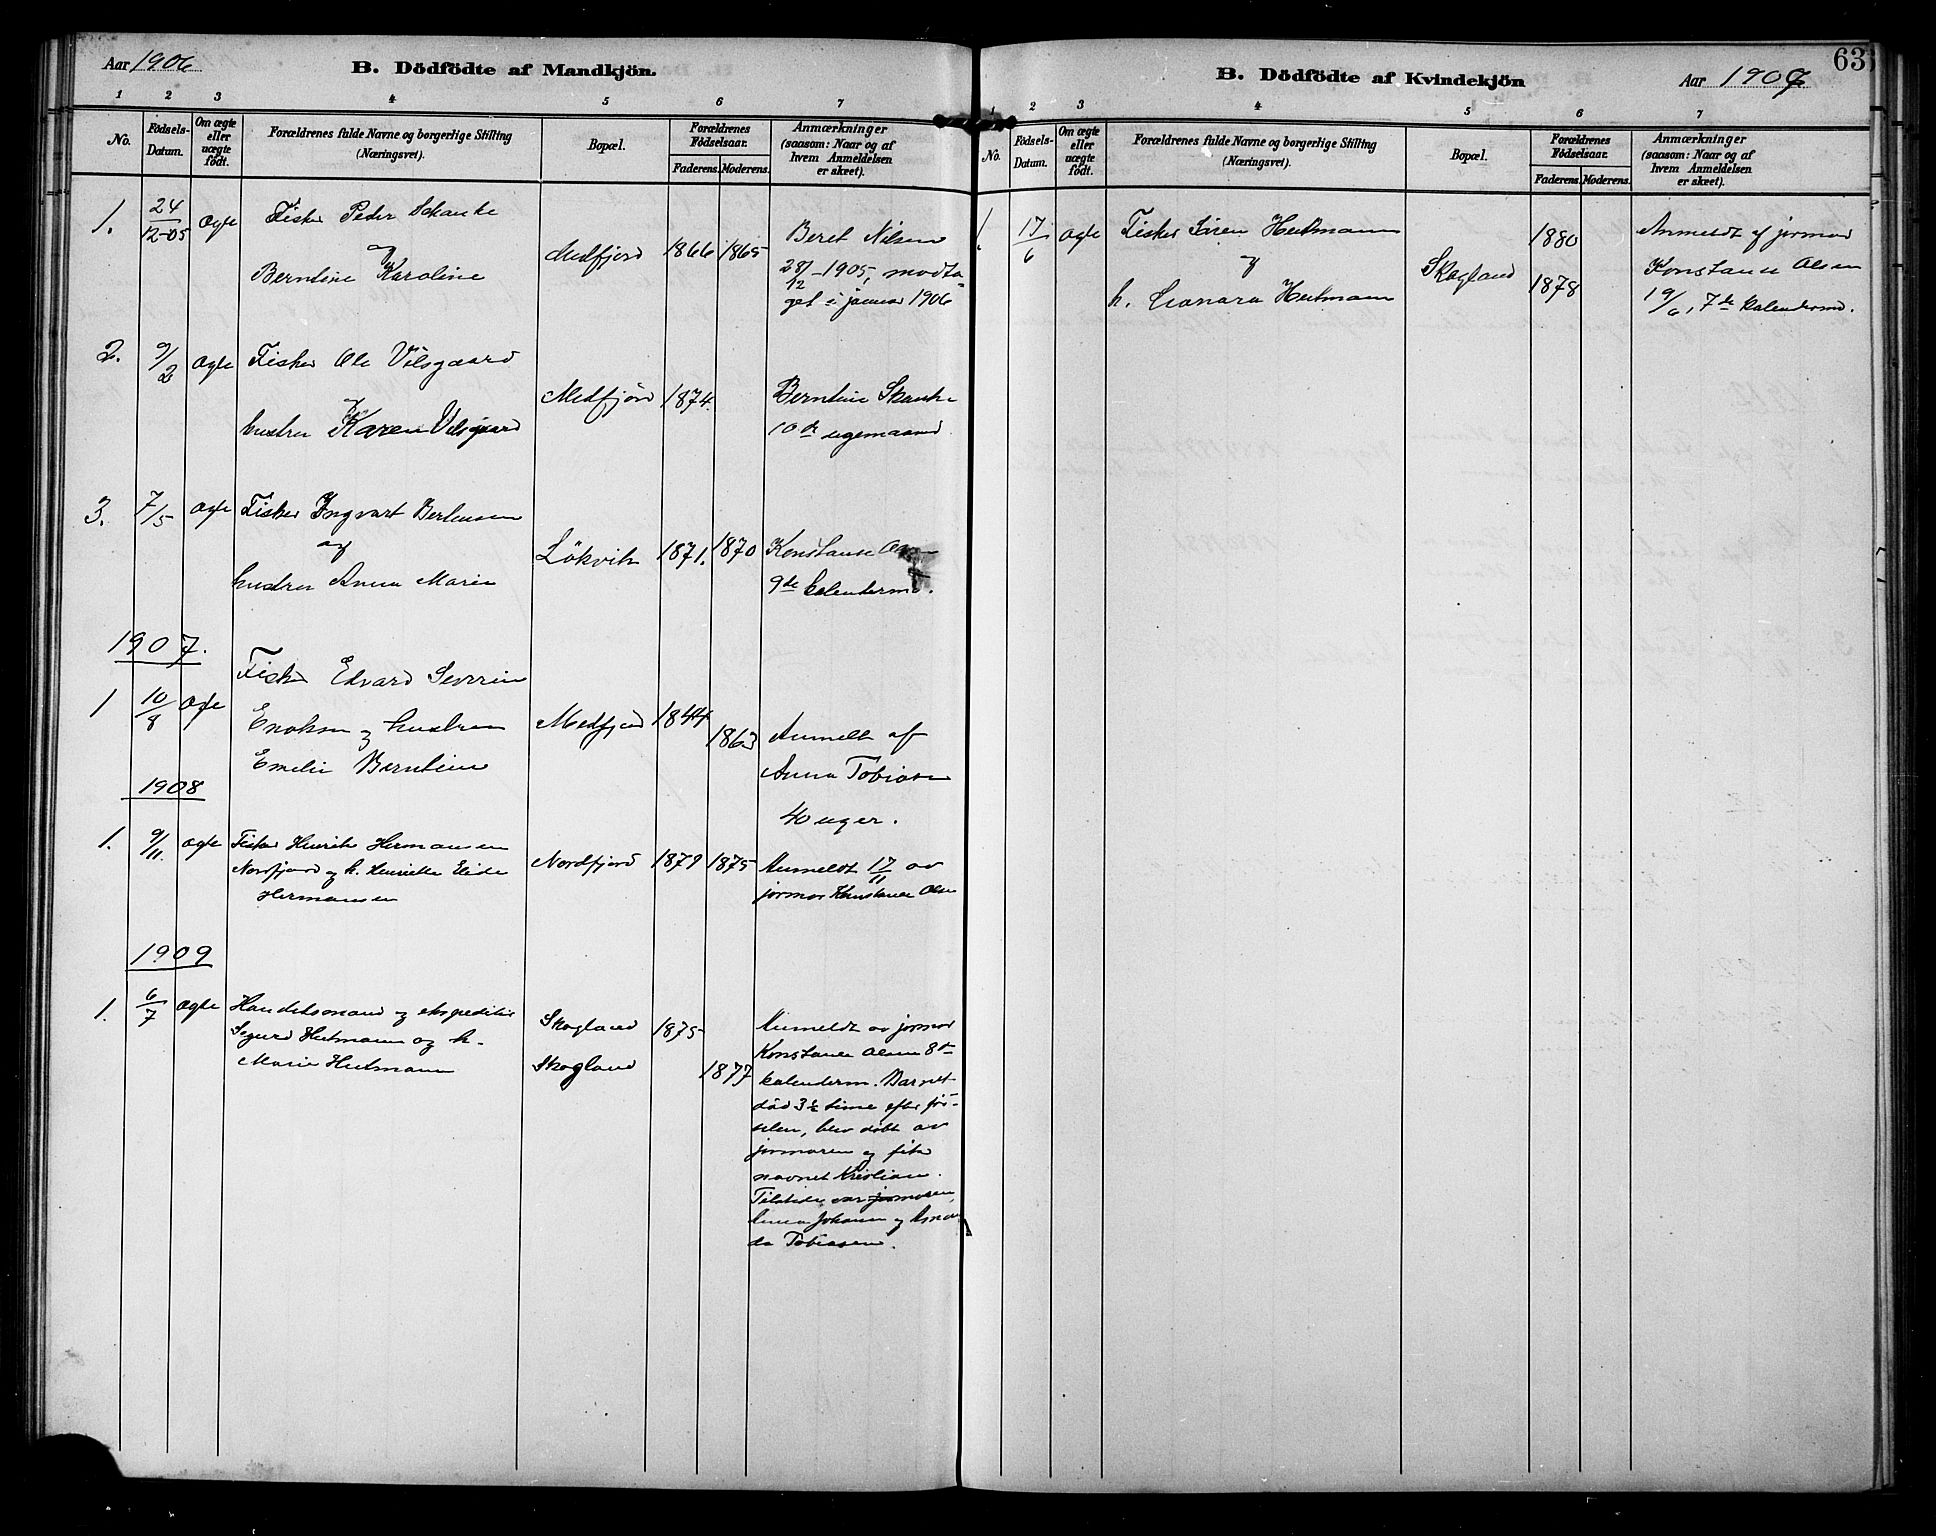 Aar 1906
B. Dödfödte af Mandkjön.
1 2 3 4 5 6 7
No. Födsels-Datum. Om ægte eller uægte födt. Forældrenes fulde Navne og borgerlige Stilling (Næringsvei). Bopæl. Forældrenes Födselsaar. Faderens. Moderens. Anmærkninger (saasom: Naar og af hvem Anmeldelsen er skeet).
1. 24/12-05 ægte Fisker Peder Schanke
og
Berntine Karoline
Medfjord 1866 1865
Beret Nilsen
28/12 - 1905, modta
get i januar 1906
2. 9/2 ægte Fisker Ole Vilsgaard
og
hustru Karen Vilsgaard
Medfjord 1874.
Berntine Skanke
10de ugemaaned
3. 7/5 ægte Fisker Ingvart Bertensen
og
hustru Anna Marie
Lökvik 1871. 1870
Konstanse
9de kalenderm.
1907.
1 10/8 ægte Fisker Edvard Severin
Enoksen og hustru
Emelie Berntine
Medfjord 1844 1863
Anmeldt af
Anna Tobiasen
40 uger.
1908
1. 9/11. ægte Fisker Henrik Hermansen
Nordfjord og h. Henriette Elide
Hermansen
Nordfjord 1879 1875
Anmeldt 17/11 av
jormor Konstanse Olsen
1909
1. 6/7 ægte Handelsmand og ekspeditör
Sigurd Heitmann og h.
Marie Heitmann
Skogland 1875
Skogland 1877
Anmeldt av jormor
Konstanse Olsen 8de
kalenderm. Barnet
död 3½ time efter fö-
selen, blev döbt av
jormoren og fik
navnet Kristian.
Tilstede var jormoren,
Anna Johansen og Aman
da Tobiasen.
63
B. Dödfödte af Kvindekjön
Aar 1907
1 2 3 4 5 6 7
No. Födsels-Datum. Om ægte eller uægte födt. Forældrenes fulde Navne og borgerlige Stilling (Næringsvei). Bopæl. Forældrenes Födselsaar. Faderens. Moderens. Anmærkninger (saasom: Naar og af hvem Anmeldelsen er skeet).
1. 17/6 ægte Fisker Sören Heitmann
og
h. Leonara Heitmann
Skogland
1880
1878
Anmeldt af jormor
Konstanse Olsen
19/6, 7de kalenderm.